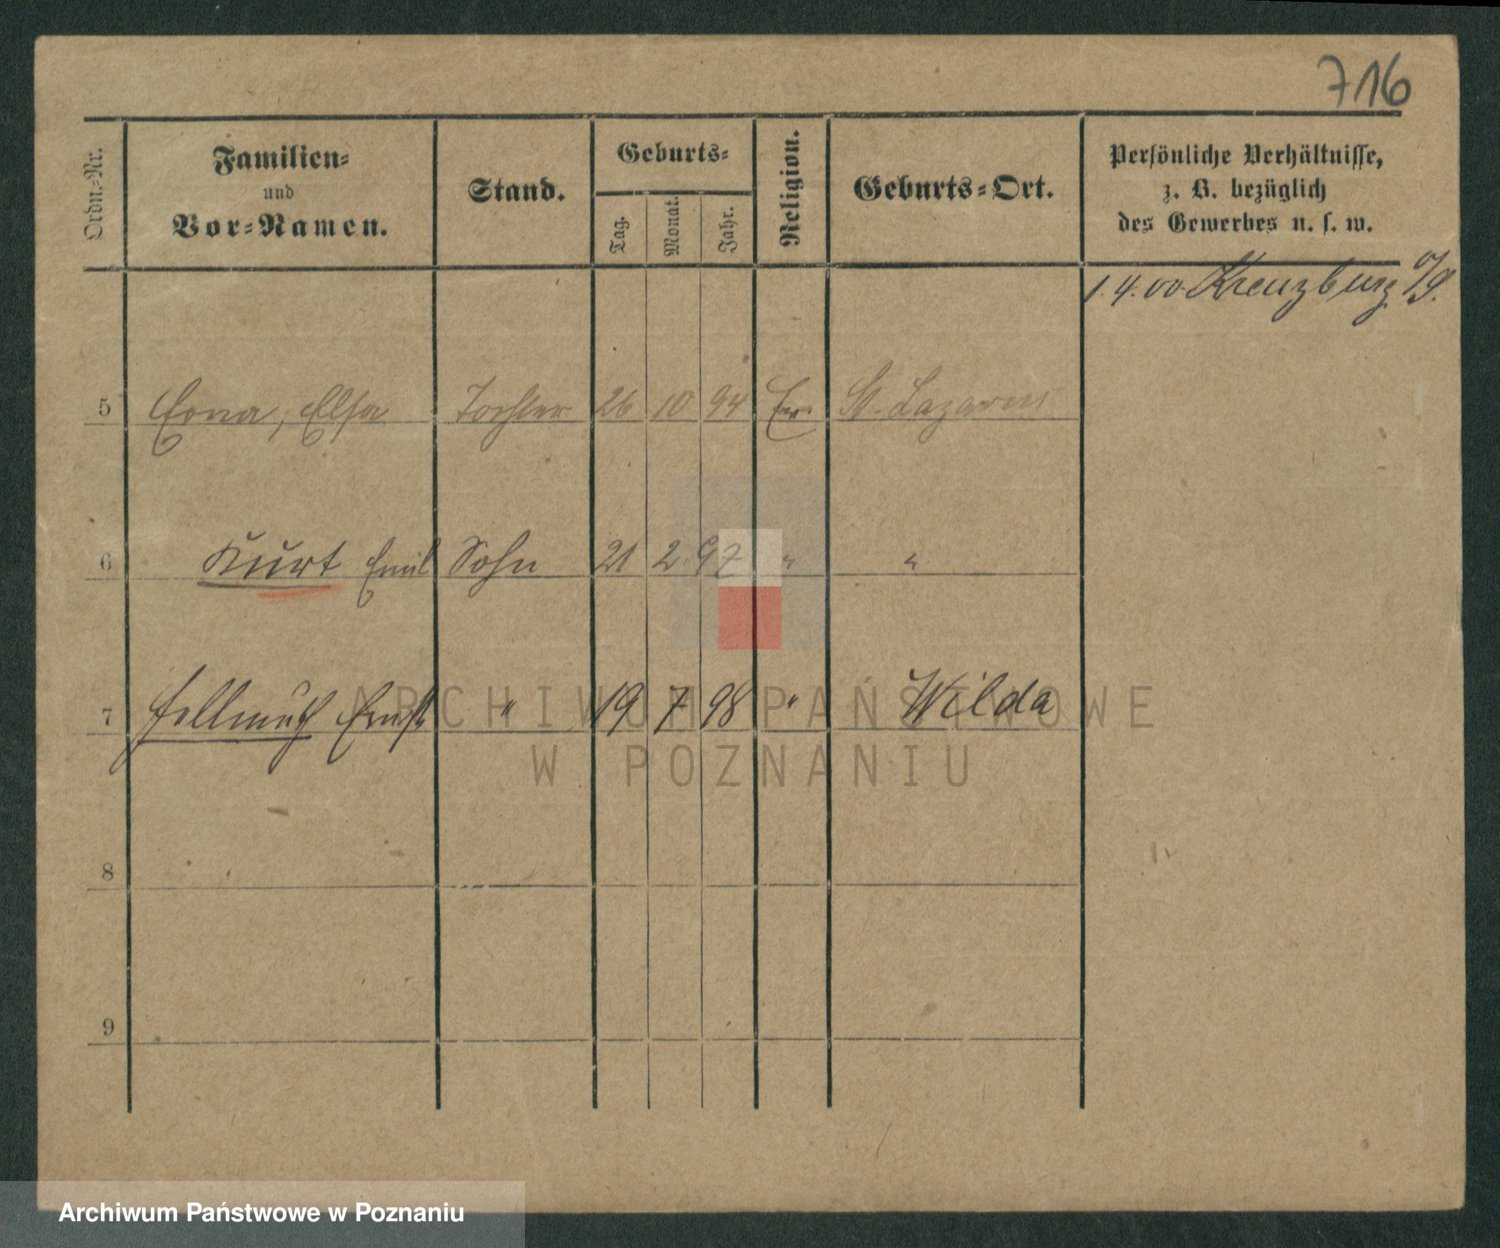 716
Ordn.-Nr.
Familien-
und
Vor-Namen.
Stand.
Geburts-
Tag.
Monat.
Jahr.
Religion.
Geburts-Ort.
Persönliche Verhältnisse,
z. B. bezüglich
des Gewerbes u. s. w.
1.4.00. Kreuzburg O/S.
5 Erna, Elsa Tochter 26 10 94 Ev. St. Lazarus
6 Kurt Emil Sohn 21 2. 97 " "
7 Hellmuth Ernst " 19 7 98 " Wilda
8
9
ARCHIWUM PAŃSTWOWE
W POZNANIU
Archiwum Państwowe w Poznaniu